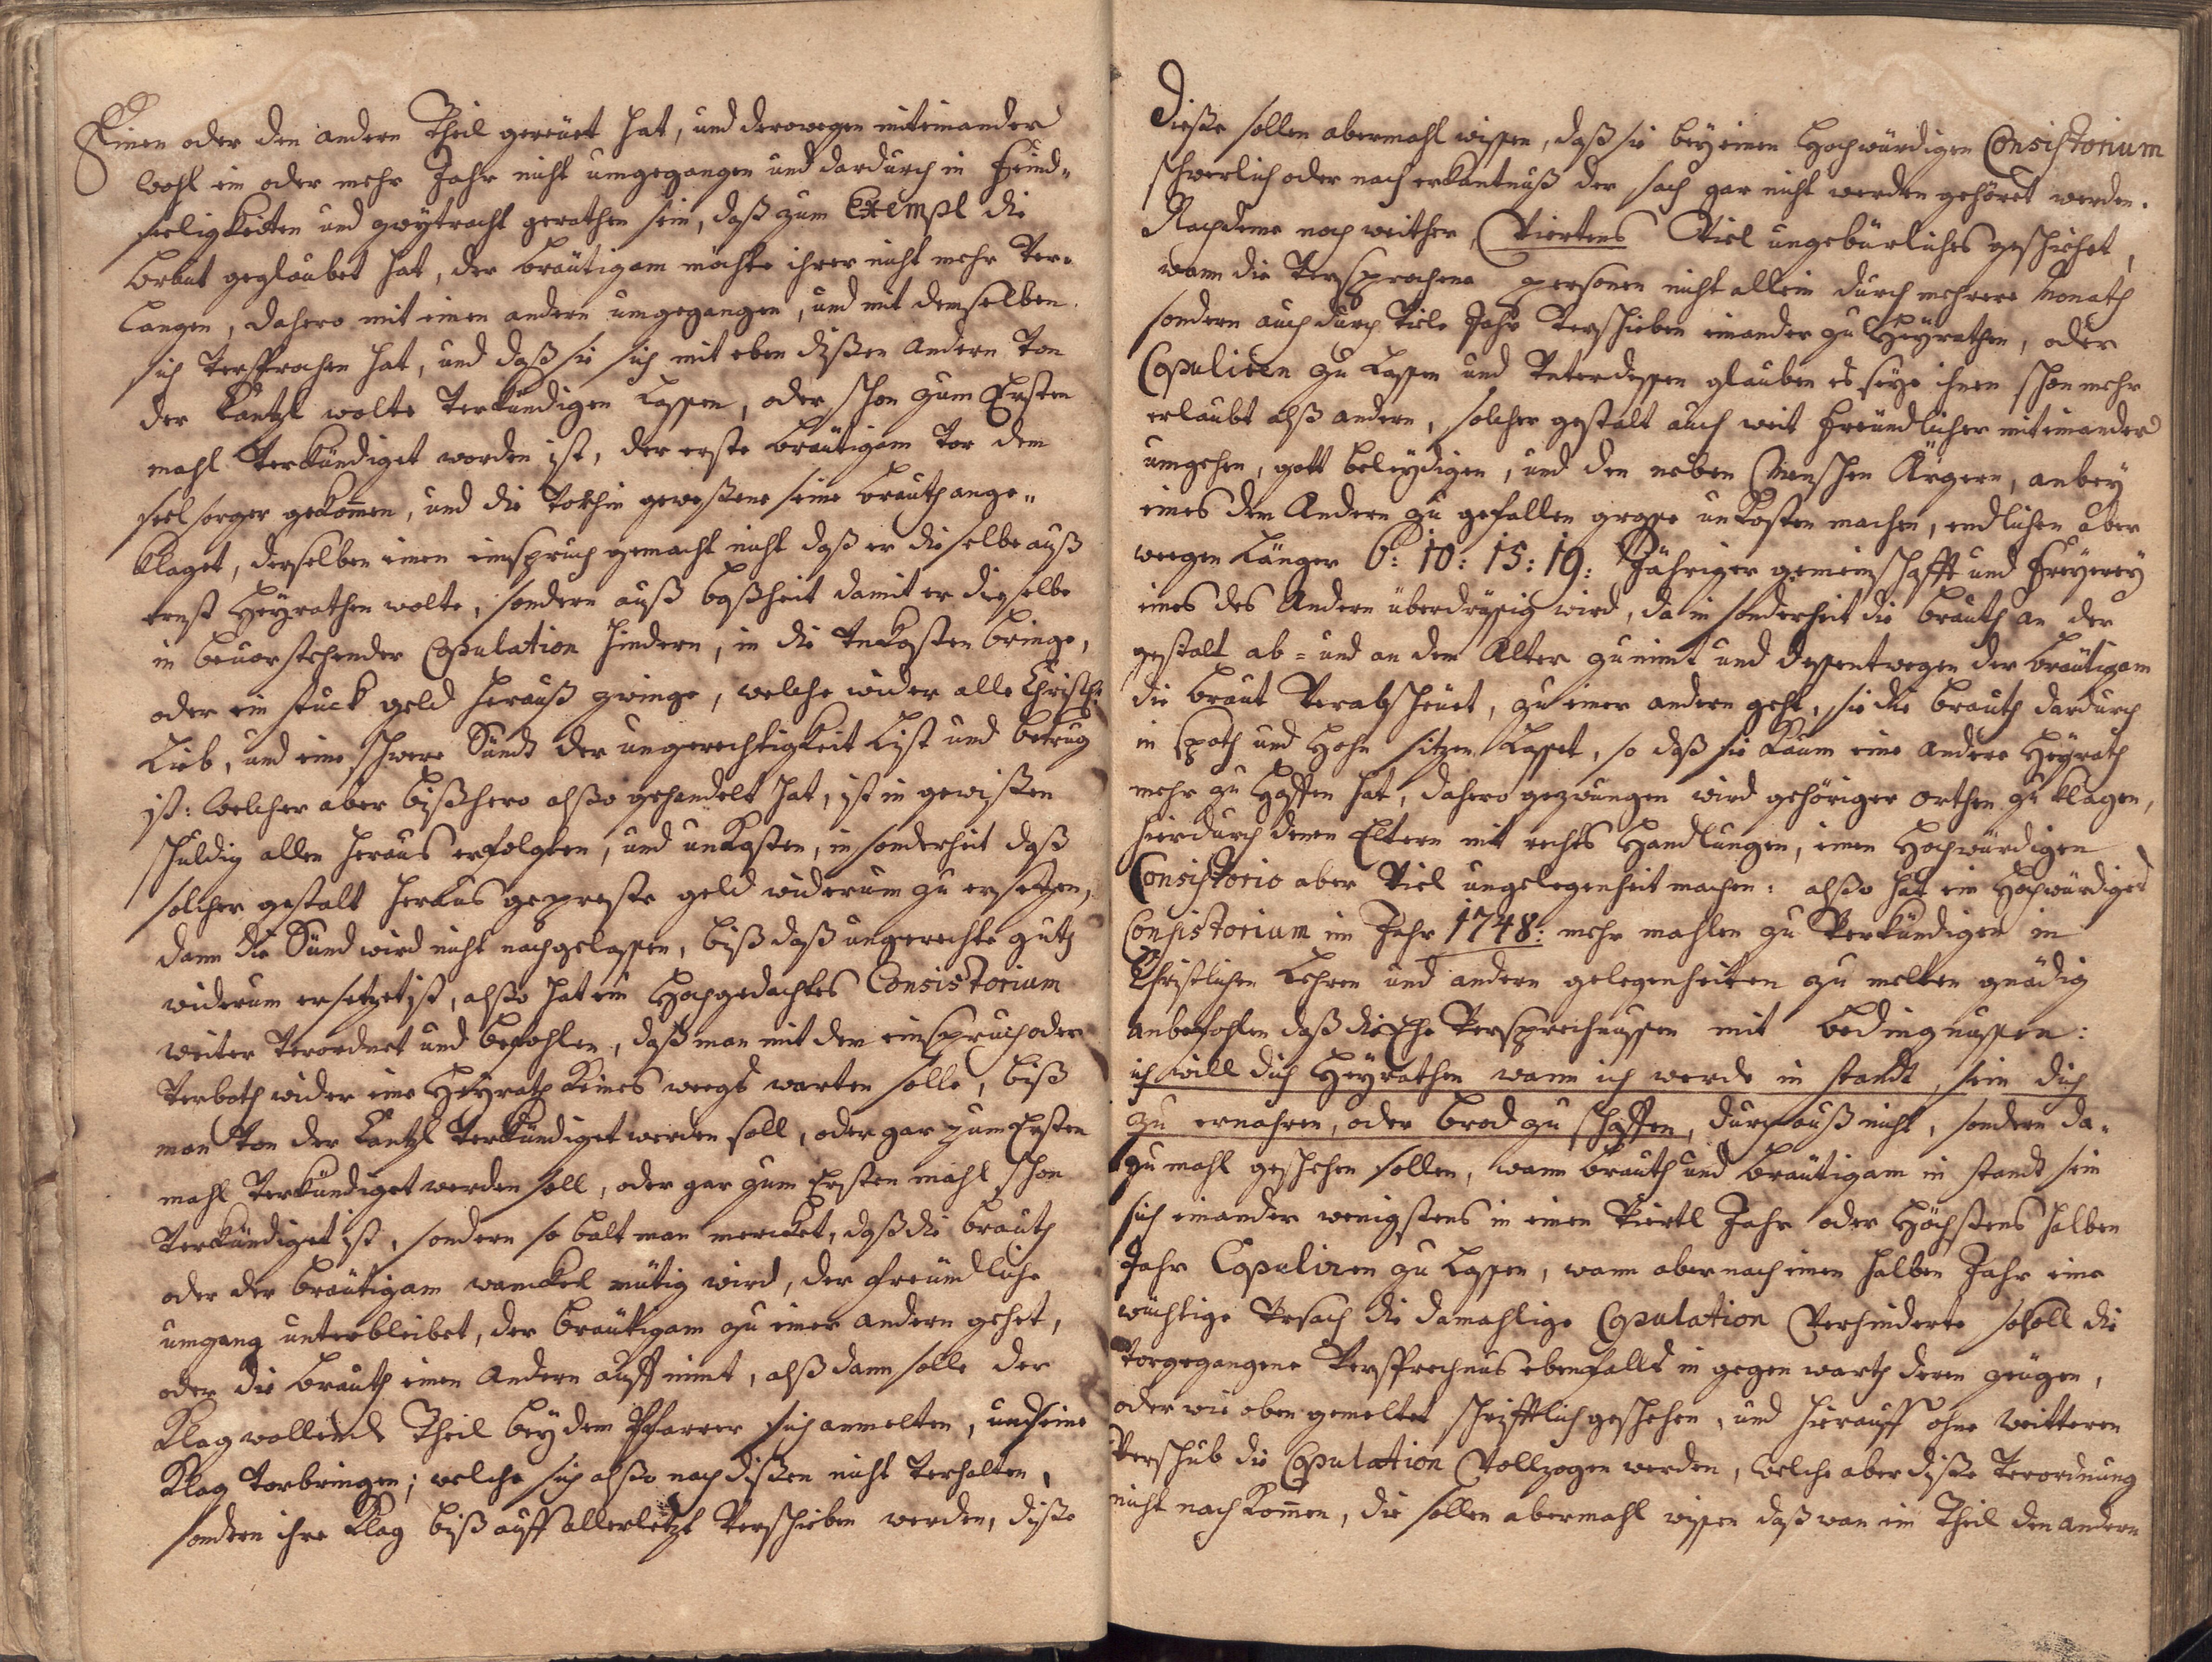 Einen oder den andern Theil gereüet hat, und derowegen miteinander
wohl ein oder mehr Jahr nicht umgegangen und dardurch in feind„
seeligkeiten und zwytracht gerathen sein, daß zum Exempl die
braut geglaubet hat, der bräutigam möchte ihrer nicht mehr ver„
langen, dahero mit einen andern umgegangen, und mit demselben
sich versprochen hat, und daß sie sich mit eben dißen andern von
der Cantzl wolte verkündigen lassen, oder schon zum Ersten
mahl verkündiget worden ist, der erste bräutigam vor dem
seelsorger gekomen, und die vorhin geweßene seine brauth ange„
klaget, derselben einen einspruch gemacht nicht daß er dieselbe auß
ernst Heÿrathen wolte, sondern auß boßheit damit er dieselbe
in bevorstehender Copulation hindern, in die unkosten bringe,
oder ein stuck geld herauß zwinge, welche wider alle Christl:
Lieb, und eine schwere Sündt der ungerechtigkeit List und betrug
ist: welcher aber bißhero alßo gehandelt hat, ist in gewißen
schuldig allen heraus erfolgten, und unkosten, in sonderheit daß
solcher gestalt heraus gepreste geld widerum zu ersetzen,
dann die Sünd wird nicht nachgelassen, biß daß ungerechte guth
widerum ersetzet ist, alßo hat ein Hochgedachtes Consistorium
weiter verordnet und befohlen, daß man mit dem einspruch oder
verboth wider eine Heÿrath keines weegs warten solle, biß
man von der Cantzl verkündiget werden soll, oder gar zum Ersten
mahl verkündiget werden soll, oder gar zum Ersten mahl schon
verkündiget ist, sondern so balt man mercket, daß die brauth
oder der bräutigam wanckel mütig wird, der freündliche
umgang unterbleibet, der bräutigam zu einer andern gehet,
oder die brauth einen andern auff nimt, alß dann solle der
Klag wollende Theil beÿ dem Pfarrer sich anmelten, und seine
Klag vorbringen; welche sich alßo nach dißen nicht verhalten,
sondern ihre Klag biß auff allerletzt verschieben werden, diße
Dieße sollen abermahl wissen, daß sie beÿ einen Hochwürdigen Consistorium
schwerlich oder nach erkantnuß der sach gar nicht werden gehöret werden.
Nachdeme noch weither, Viertens Viel ungebürliches geschiehet,
wann die versprochene personen nicht allein durch mehrere Monath
sondern auch durch viele Jahr verschieben einander zu Heÿrathen, oder
Copuliren zu Lassen und Unterdessen glauben es seÿe ihnen schon mehr
erlaubt alß andern, solcher gestalt auch weit freündlicher miteinander
umgehen, gott beleÿdigen, und den neben Menschen Ärgern, anbeÿ
eines dem Andern zu gefallen grosse unkosten machen, endlichen aber
weegen Länger 6: 10: 15: 19: Jähriger gemeinschafft und freÿereÿ
eines des Andern überdrüssig wird, da in sonderheit die brauth an der
gestalt ab = und an dem Alter zunimt und dessentwegen der bräutigam
die braut verabscheüet, zu einer andern geht, sie die brauth dardurch
in spoth und Hohn sitzen Lasset, so daß sie kaum eine andere Heÿrath
mehr zu Hoffen hat, dahero gezwungen wird gehöriger orthen zu klagen,
hierdurch denen Eltern mit rechts Handlungen, einen Hochwürdigen
Consistorio aber Viel ungelegenheit machen: alßo hat ein Hochwürdiges
Consistorium im Jahr 1748: mehr mahlen zu verkündigen in
Christlichen Lehren und andern gelegenheiten zu melten gnädig
anbefohlen daß die Ehe Versprechnussen mit bedingnussen:
ich will dich Heÿrathen wann ich werde in standt sein dich
zu ernahren, oder brod zu schaffen, durchauß nicht, sondern da„
zu mahl geschehen sollen, wann brauth und bräutigam in standt sein
sich einander wenigstens in einen viertl Jahr oder Höchstens halben
Jahr Copuliren zu Lassen, wann aber nach einen halben Jahr eine
wichtige Ursach die damahlige Copulation Verhinderte so soll die
vorgegangene Versprechnus ebenfalls in gegenwarth deren zeügen,
oder wie oben gemeltet schrifftlich geschehen, und hierauff ohne weitteren
Verschub die Copulation Vollzogen werden, welche aber diße verordnung
nicht nachkomen, die sollen abermahl wissen daß wan ein Theil den andern